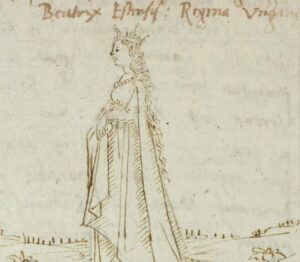 Beatrix Estensis: Regina Ungari